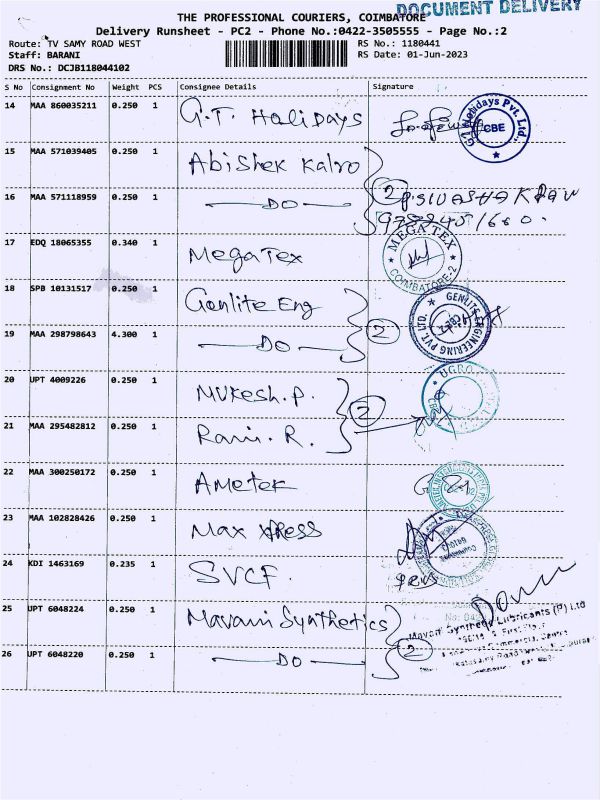 DOCUMENT DELIVERY
THE PROFESSIONAL COURIERS, COIMBATORE
Delivery Runsheet - PC2 - Phone No.:0422-3505555 - Page No.:2
Route: TV SAMY ROAD WEST RS No.: 1180441
Staff: BARANI RS Date: 01-Jun-2023
DRS No.: DCJB118044102
S No Consignment No Weight PCS Consignee Details Signature
14 MAA 860035211 0.250 1 G.T. Holidays
GT Holidays Pvt. Ltd., CBE
15 MAA 571039405 0.250 1 Abishek Kalro
16 MAA 571118959 0.250 1 DO 2
17 EDQ 18065355 0.340 1 MegaTex
MEGATEX COIMBATORE-2
18 SPB 10131517 0.250 1 Genlite Eng
GENLITE ENGINEERING PVT. LTD.
19 MAA 298798643 4.300 1 DO 2
20 UPT 4009226 0.250 1 Mukesh.P.
21 MAA 295482812 0.250 1 Rani.R. 2
22 MAA 300250172 0.250 1 Ametek
23 MAA 102828426 0.250 1 Max xpress
24 KDI 1463169 0.235 1 SVCF.
25 UPT 6048224 0.250 1 Mavani Synthetics
Lubricants (P) Ltd
26 UPT 6048220 0.250 1 DO 2